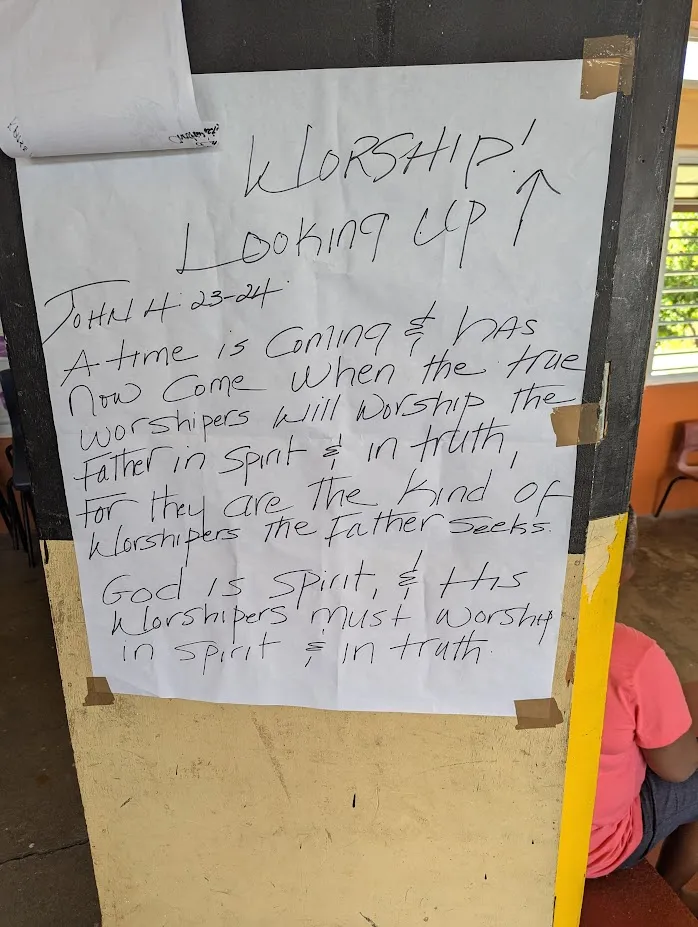 WORSHIP!
Looking UP ↑
JOHN 4: 23-24
A time is coming & has
now come when the true
worshipers will worship the
Father in spirit & in truth,
For they are the kind of
Worshipers the Father seeks.
God is spirit, & His
Worshipers must worship
in spirit & in truth.